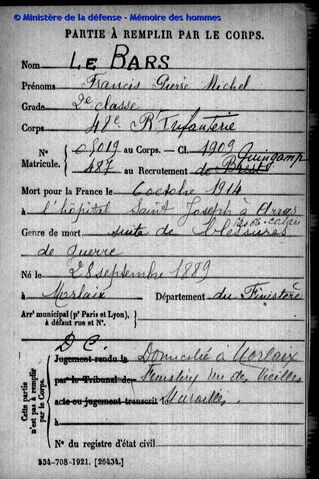 © Ministère de la défense - Mémoire des hommes
PARTIE À REMPLIR PAR LE CORPS.
Nom LE BARS
Prénoms Francis Pierre Michel
Grade 2e classe
Corps 48e Rt Infanterie
N° 05019 au Corps. — Cl. 1909
Matricule. 487 au Recrutement de Brest Guingamp
Mort pour la France le 6 octobre 1914
à l'hôpital Saint Joseph à Arras
Pas de Calais
Genre de mort suite de blessures
de guerre
Né le 28 septembre 1889
à Morlaix Département du Finistère
Arrt municipal (pr Paris et Lyon),
à défaut rue et N°.
D C.
Cette partie n'est pas à remplir par le Corps.
Jugement rendu le Domicilié à Morlaix
par le Tribunal de Finistère rue des Vieilles
acte ou jugement transcrit le Murailles
à
N° du registre d'état civil
534-708-1921. [26434.]